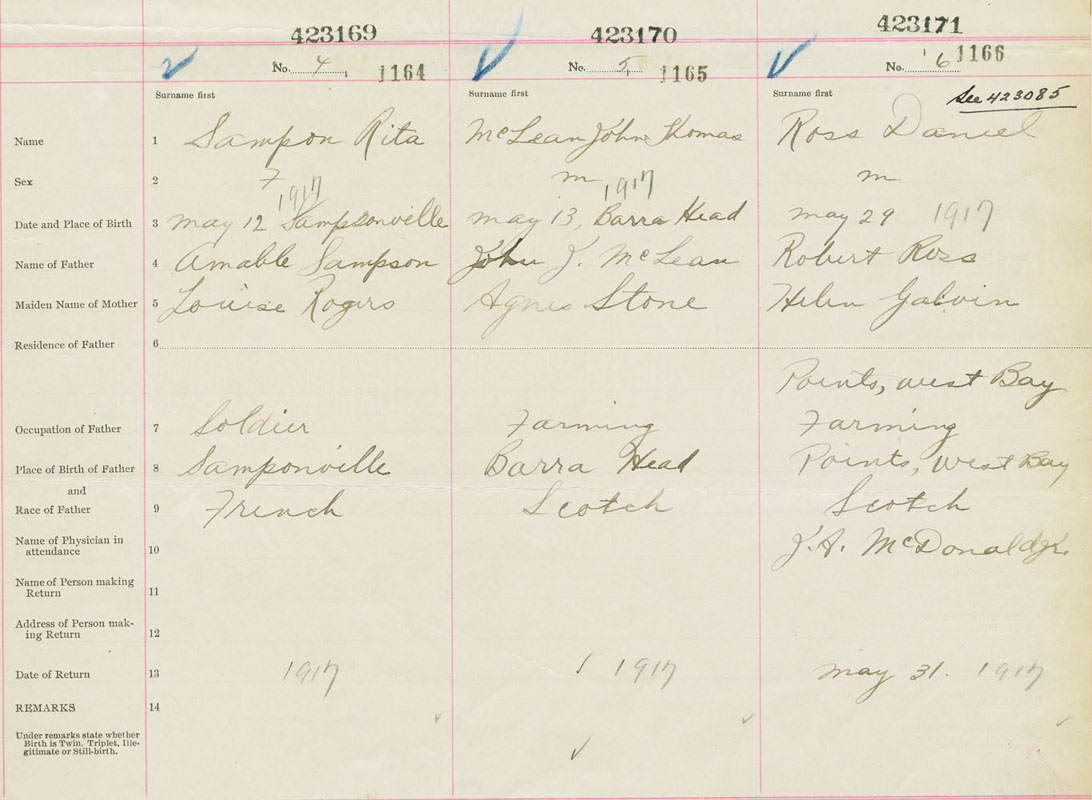 423169 423170 423171
No. 4 1164 No. 5 1165 No. 6 1166
Surname first Surname first Surname first See 423085
Name 1 Sampon Rita McLean John Thomas Ross Daniel
Sex 2 F m m
1917 1917
Date and Place of Birth 3 May 12 Sampsonville May 13, Barra Head May 29 1917
Name of Father 4 Amable Sampson John J. McLean Robert Ross
Maiden Name of Mother 5 Louise Rogers Agnes Stone Helen Galvin
Residence of Father 6
Points, West Bay
Occupation of Father 7 Soldier Farming Farming
Place of Birth of Father 8 Samponville Barra Head Points, West Bay
and
Race of Father 9 French Scotch Scotch
Name of Physician in
attendance 10 J.A. McDonald
Name of Person making
Return 11
Address of Person mak-
ing Return 12
Date of Return 13 1917 1917 May 31. 1917
REMARKS 14
Under remarks state whether
Birth is Twin, Triplet, Ille-
gitimate or Still-birth.